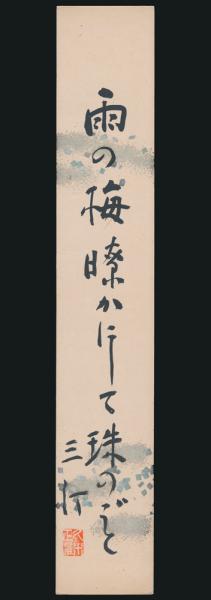 雨の梅瞭かにして珠のごと
三